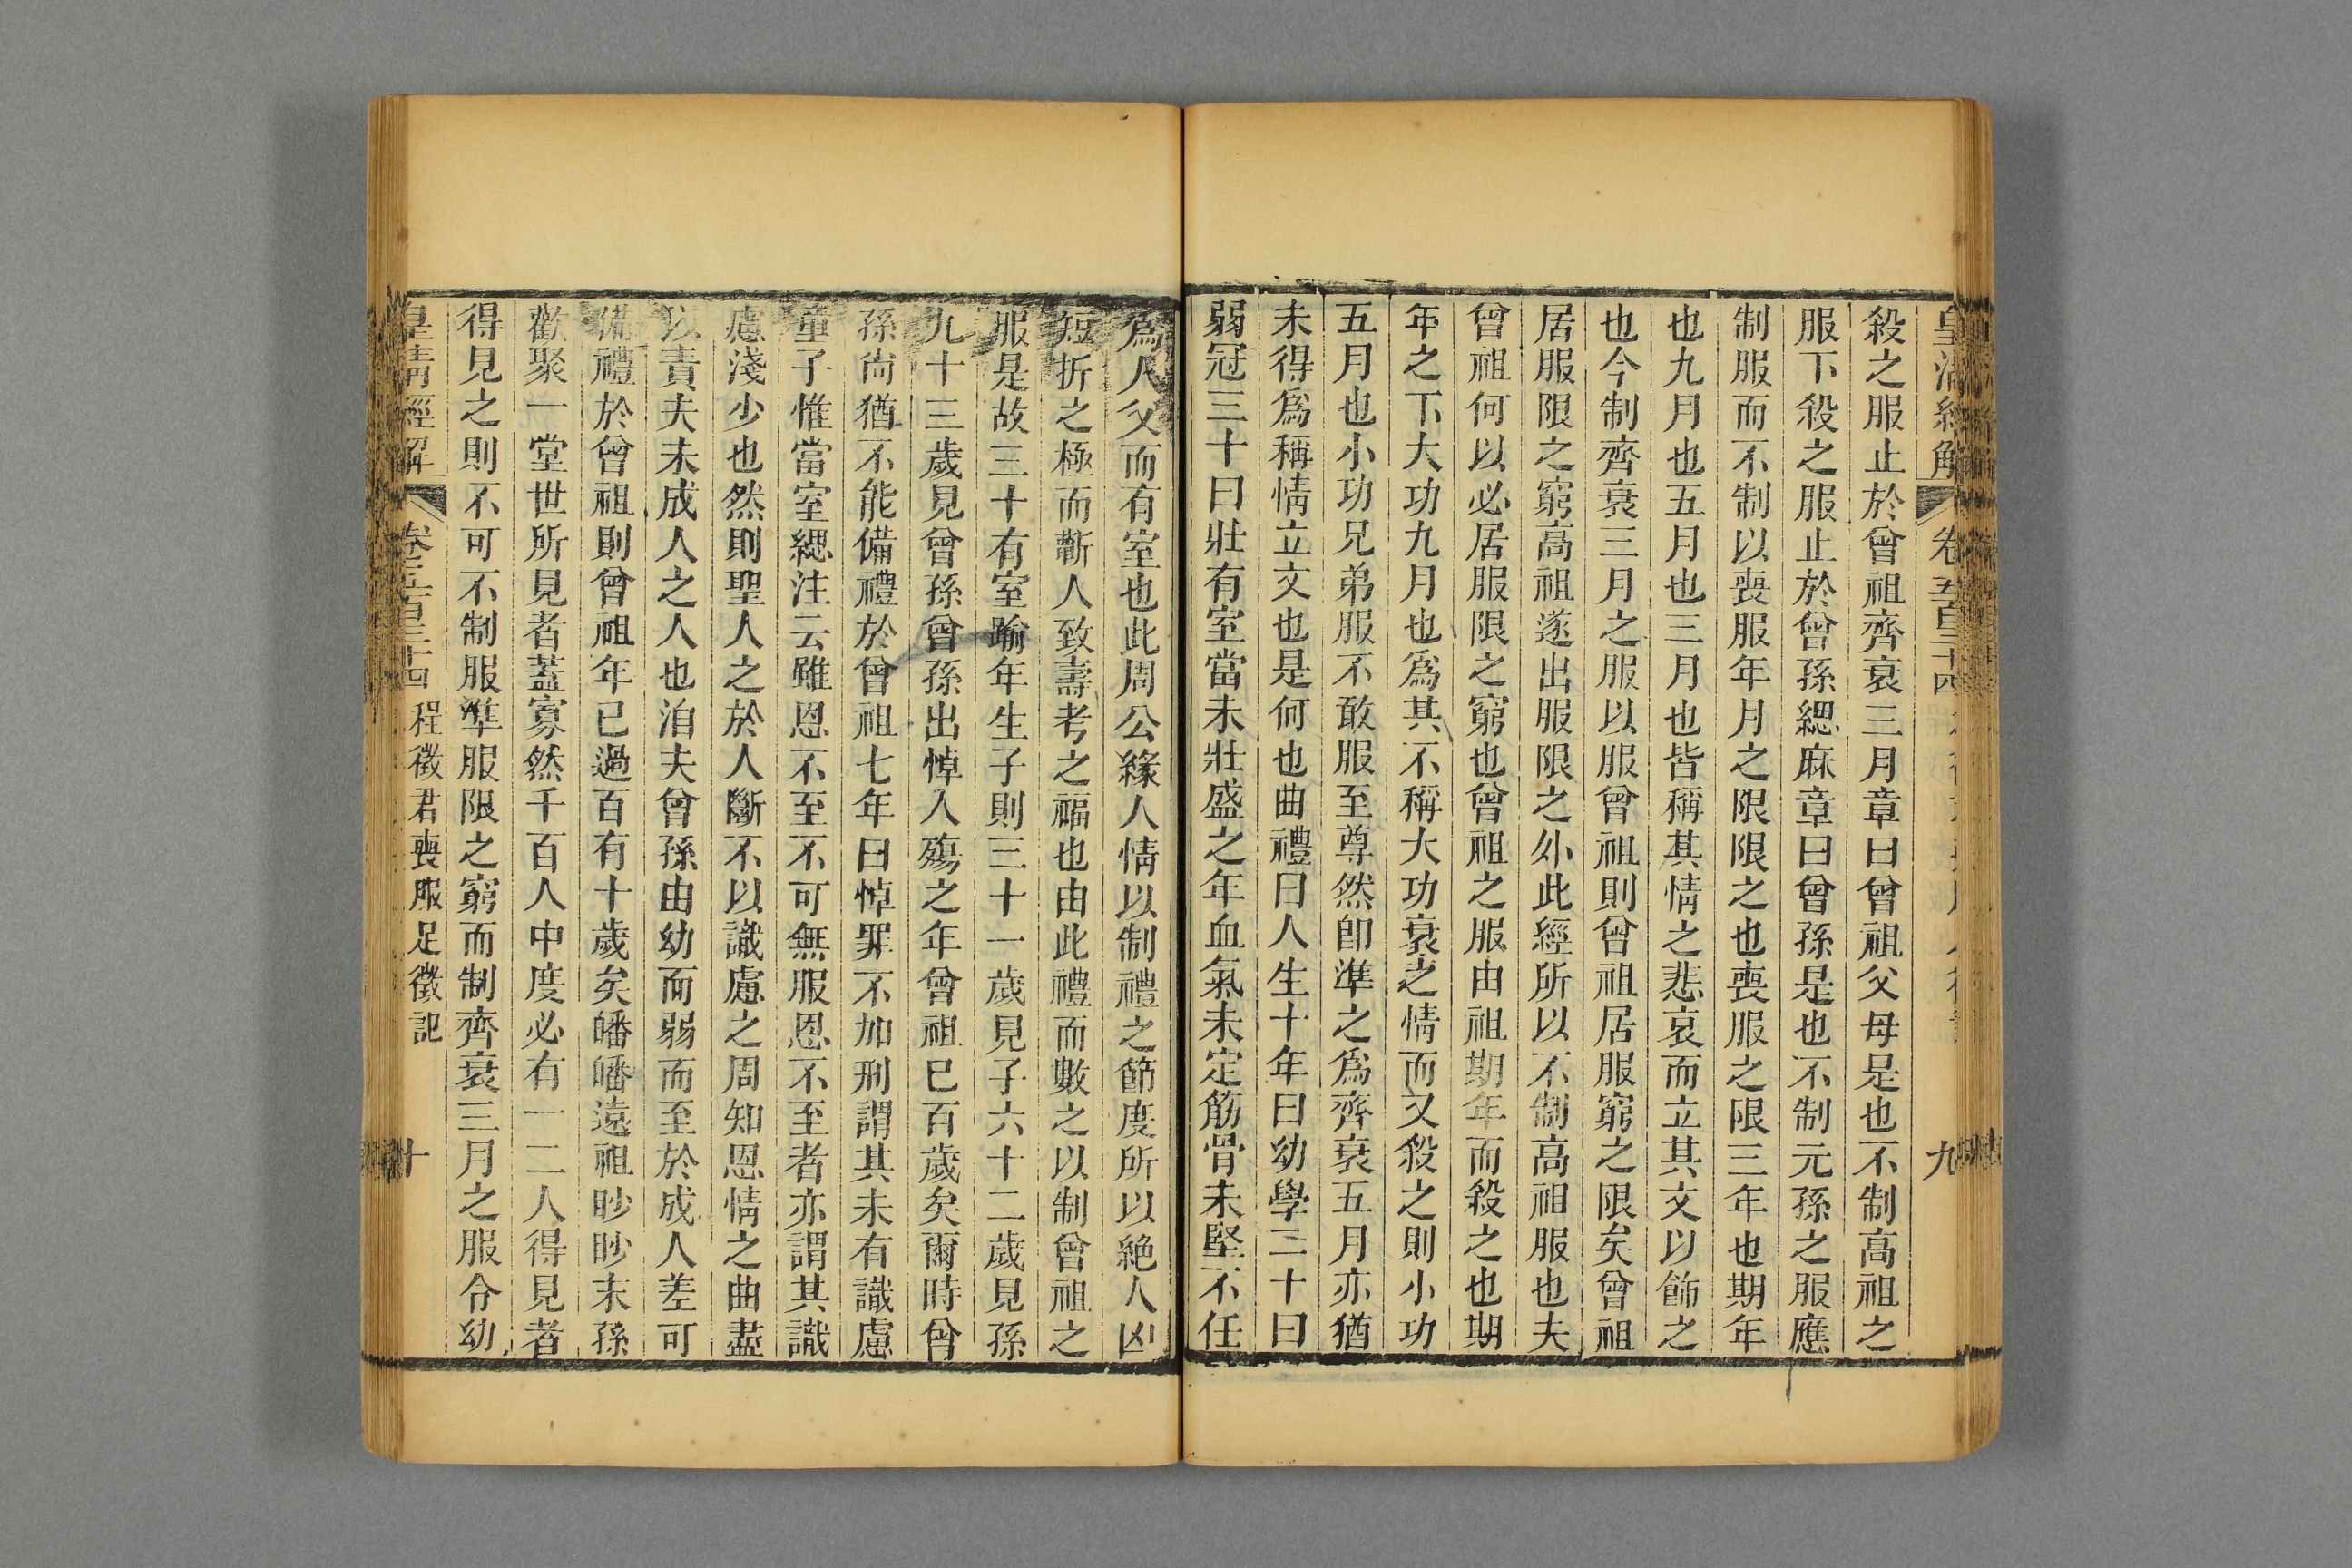 皇清經解 卷五百二十四 九
殺之服止於曾祖齊衰三月章曰曾祖父母是也不制高祖之
服下殺之服止於曾孫緦麻章曰曾孫是也不制元孫之服應
制服而不制以喪服年月之限限之也喪服之限三年也期年
也九月也五月也三月也皆稱其情之悲哀而立其文以飾之
也今制齊衰三月之服以服曾祖則曾祖居服窮之限矣曾祖
居服限之窮高祖遂出服限之外此經所以不制高祖服也夫
曾祖何以必居服限之窮也曾祖之服由祖期年而殺之也期
年之下大功九月也爲其不稱大功衰之情而又殺之則小功
五月也小功兄弟服不敢服至尊然卽準之爲齊衰五月亦猶
未得爲稱情立文也是何也曲禮曰人生十年曰幼學二十曰
弱冠三十曰壯有室當未壯盛之年血氣未定筋骨未堅不任
爲人父而有室也此周公緣人情以制禮之節度所以絶人凶
短折之極而蘄人致壽考之福也由此禮而數之以制曾祖之
服是故三十有室踰年生子則三十一歲見子六十二歲見孫
九十三歲見曾孫曾孫出悼入殤之年曾祖巳百歲矣爾時曾
孫尙猶不能備禮於曾祖七年曰悼罪不加刑謂其未有識慮
童子惟當室緦注云雖恩不至不可無服恩不至者亦謂其識
慮淺少也然則聖人之於人斷不以識慮之周知恩情之曲盡
以責夫未成人之人也洎夫曾孫由幼而弱而至於成人差可
備禮於曾祖則曾祖年已過百有十歲矣皤皤遠祖眇眇末孫
歡聚一堂世所見者蓋寡然千百人中度必有一二人得見者
得見之則不可不制服準服限之窮而制齊衰三月之服令幼
皇淸經解 卷五百二十四 程徵君喪服足徵記 十